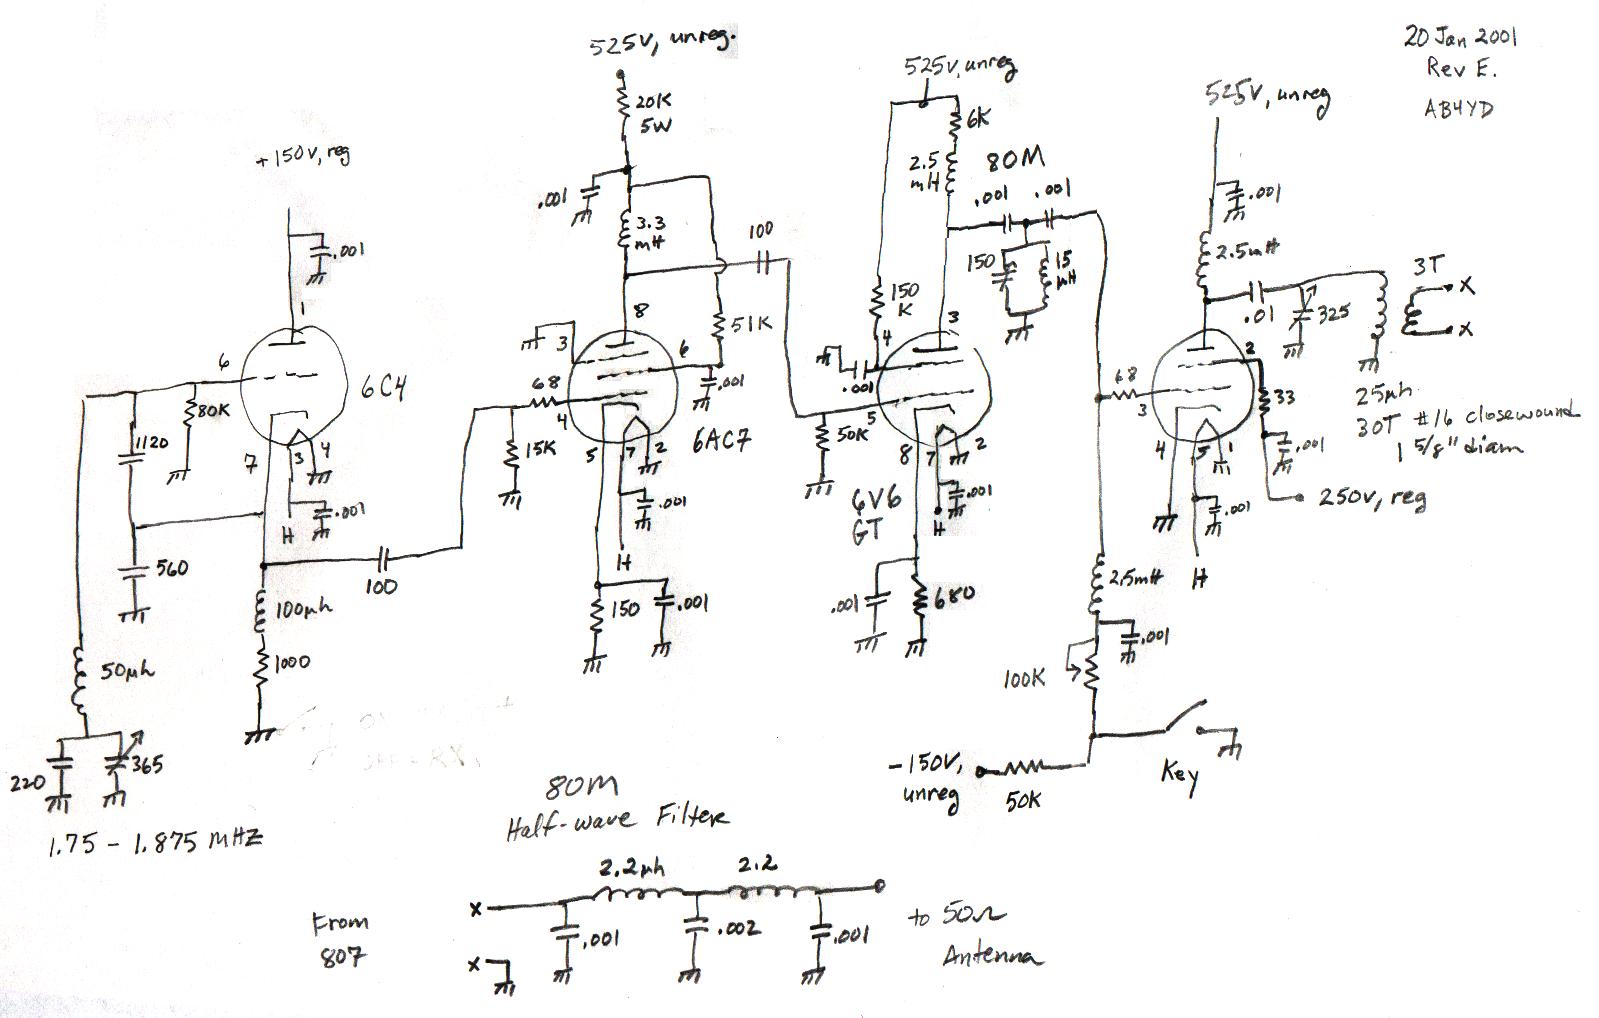 20 Jan 2001
Rev E.
AB4YD
+150V, reg
.001
1
6
6C4
80K
1120
7
3
4
H
.001
560
100µh
1000
100
50µh
220
365
1.75 - 1.875 MHZ
525V, unreg.
20K
5W
.001
3.3
mH
100
8
3
6
51K
.001
68
4
15K
6AC7
5
7
2
.001
H
150
.001
525V, unreg
6K
2.5
mH
80M
.001
.001
150
15
µH
150
K
3
4
.001
5
50K
8
7
2
6V6
GT
.001
H
.001
680
525V, unreg
.001
2.5mH
.01
325
3T
X
X
25µh
30T #16 closewound
1 5/8" diam
2
68
3
33
.001
4
5
1
250V, reg
.001
H
2.5mH
.001
100K
-150V,
unreg
50K
Key
80M
Half-wave Filter
2.2µh
2.2
X
.001
.002
.001
From
807
X
to 50Ω
Antenna